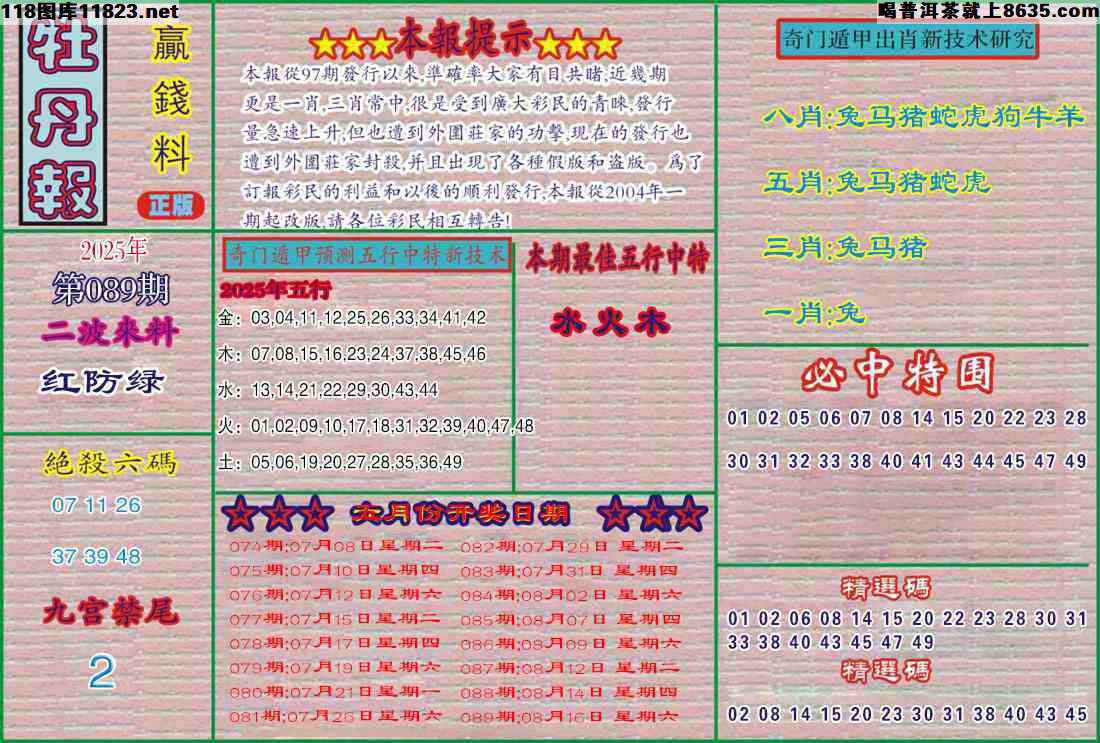 118图库11823.net
喝普洱茶就上8635.com
牡丹報
赢錢料
正版
★★★本報提示★★★
本報從97期發行以來,準確率大家有目共睹,近幾期
更是一肖,三肖常中,很是受到廣大彩民的青睞,發行
量急速上升,但也遭到外圍莊家的功擊,現在的發行也
遭到外圍莊家封殺,并且出現了各種假版和盗版。爲了
訂報彩民的利益和以後的順利發行,本報從2004年一
期起改版,請各位彩民相互轉告!
2025年
第089期
二波來料
红防绿
絕殺六碼
07 11 26
37 39 48
九宫禁尾
2
奇门遁甲预测五行中特新技术
2025年五行
金：03,04,11,12,25,26,33,34,41,42
木：07,08,15,16,23,24,37,38,45,46
水：13,14,21,22,29,30,43,44
火：01,02,09,10,17,18,31,32,39,40,47,48
土：05,06,19,20,27,28,35,36,49
本期最佳五行中特
水火木
☆☆☆ 六月份开奖日期 ☆☆☆
074期:07月08日星期二 082期:07月29日 星期二
075期:07月10日星期四 083期:07月31日 星期四
076期:07月12日星期六 084期:08月02日 星期六
077期:07月15日星期二 085期:08月07日 星期四
078期:07月17日星期四 086期:08月09日 星期六
079期:07月19日星期六 087期:08月12日 星期二
080期:07月21日星期一 088期:08月14日 星期四
081期:07月26日星期六 089期:08月16日 星期六
奇门遁甲出肖新技术研究
八肖:兔马猪蛇虎狗牛羊
五肖:兔马猪蛇虎
三肖:兔马猪
一肖:兔
必中特围
01 02 05 06 07 08 14 15 20 22 23 28
30 31 32 33 38 40 41 43 44 45 47 49
精選碼
01 02 06 08 14 15 20 22 23 28 30 31
33 38 40 43 45 47 49
精選碼
02 08 14 15 20 23 30 31 38 40 43 45